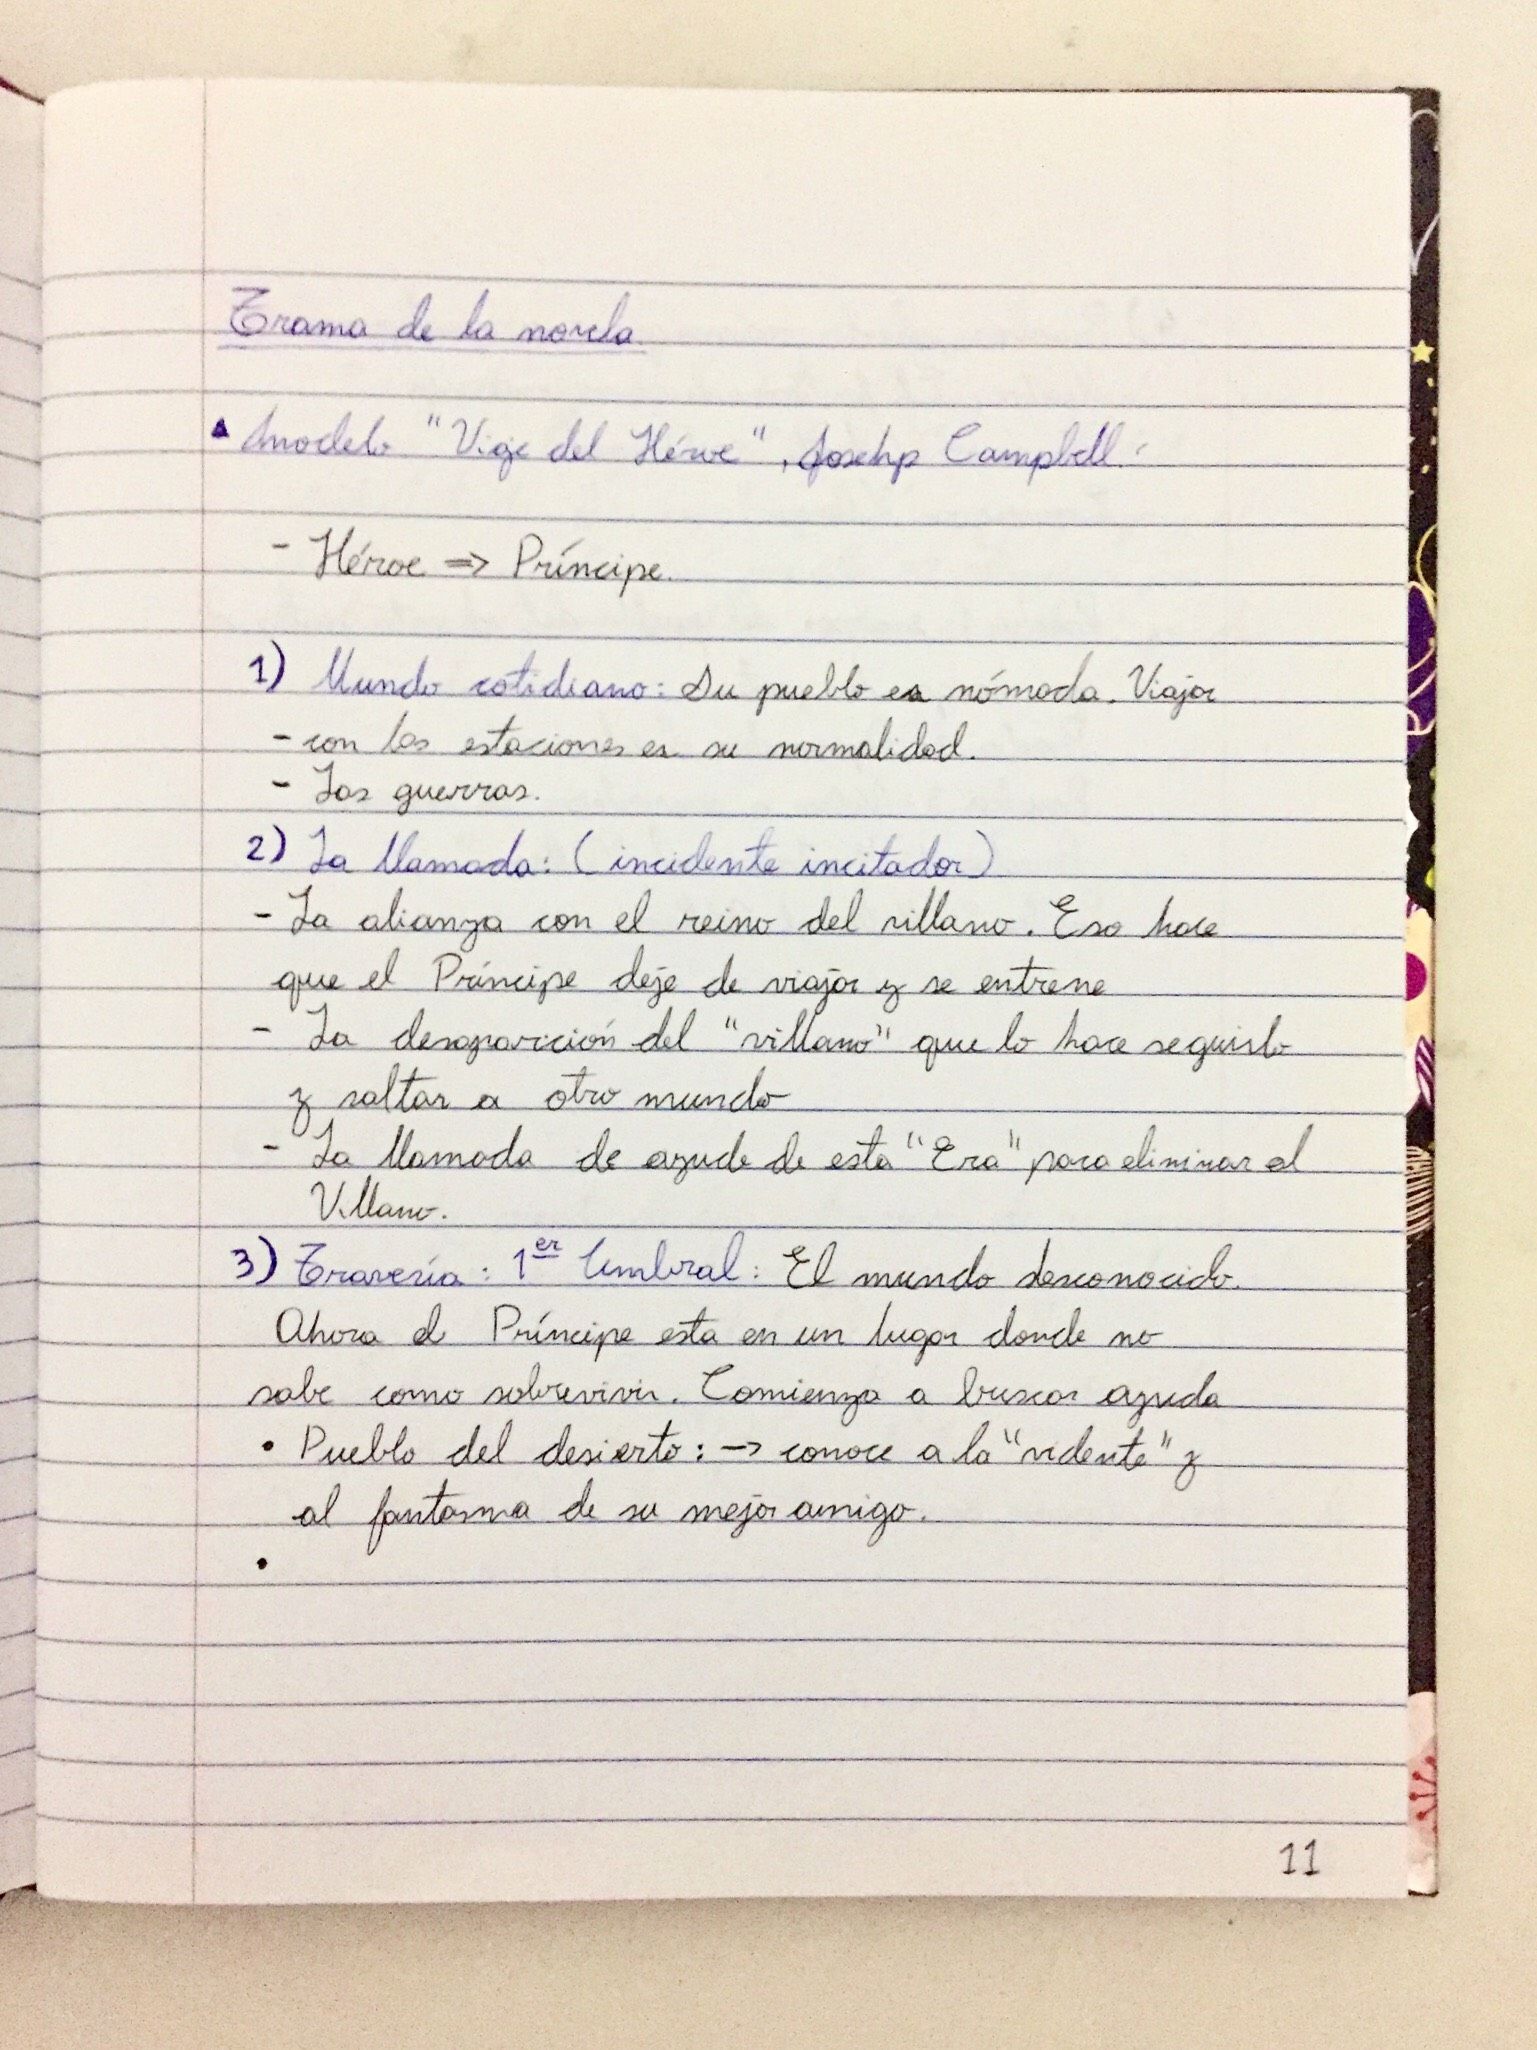 Trama de la novela
▲ Modelo "Viaje del Héroe", Josehp Campbell:
- Héroe => Príncipe.
1) Mundo cotidiano: Su pueblo es nómada. Viajar
- con las estaciones es su normalidad.
- Las guerras.
2) La llamada: (incidente incitador)
- La alianza con el reino del villano. Eso hace
que el Príncipe deje de viajar y se entrene
- La desaparición del "villano" que lo hace seguirlo
y saltar a otro mundo
- La llamada de ayuda de esta "Era" para eliminar al
Villano.
3) Travesía: 1er Umbral: El mundo desconocido.
Ahora el Príncipe esta en un lugar donde no
sabe como sobrevivir. Comienza a buscar ayuda
• Pueblo del desierto: -> conoce a la "vidente" y
al fantasma de su mejor amigo.
•
11